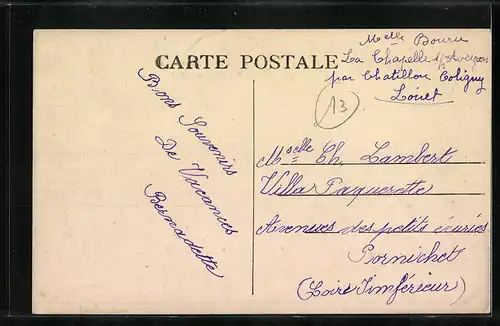 CARTE POSTALE
Melle Bouru
La Chapelle s/Aveyron
par Chatillon Coligny
Loiret
13
Bons Souvenirs
De Vacances
Bernadette
Melle Ch. Lambert
Villa Paquerette
Avenues des petits écuries
Pornichet
(Loire Inférieur)